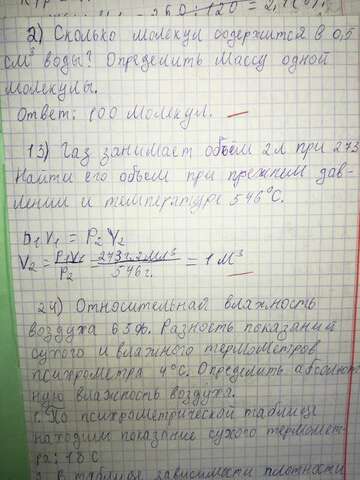 260 · 120 = 2,1
2) Сколько молекул содержится в 0,5
см³ воды? Определить массу одной
молекулы.
Ответ: 100 молекул.
13) Газ занимает объем 2л при 273
Найти его объем при прежнем дав-
лении и температуре 546°С.
P₁V₁ = P₂V₂
V₂ = P₁V₁ / P₂ = 273г.2мм³ / 546г. = 1м³
24) Относительная влажность
воздуха 63%. Разность показаний
сухого и влажного термометров
психрометра 4°С. Определить абсолют
ную влажность воздуха.
1. По психрометрической таблице
находим показание сухого термомет-
ра: 18 С
2. В таблице зависимости плотности